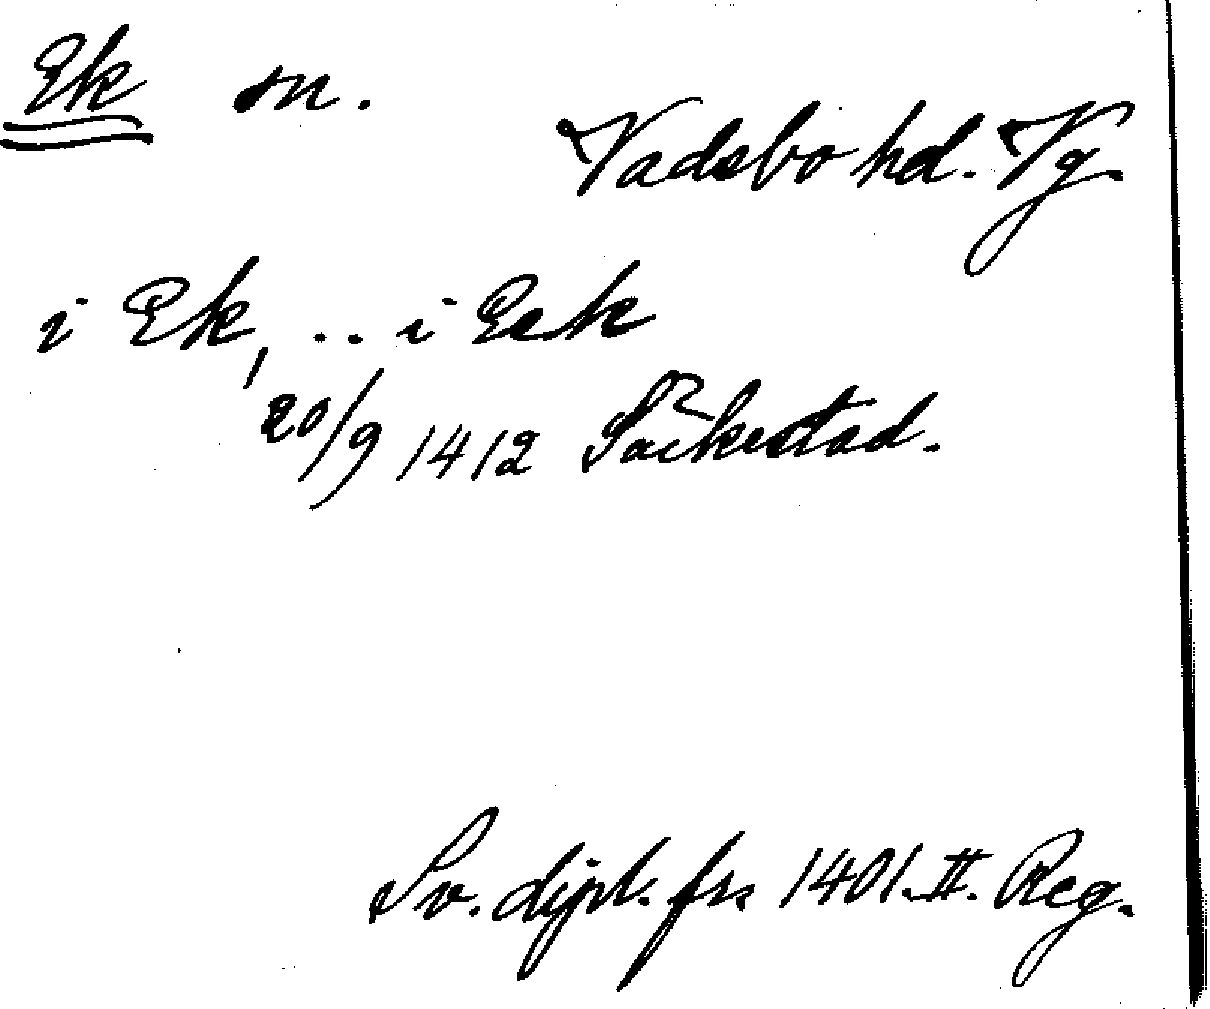 Ek sn.
Vadsbo hd. Vg.
i Ek, .. i Eek
20/9 1412 Säckestad.
Sv. dipl. fr. 1401. II. Reg.